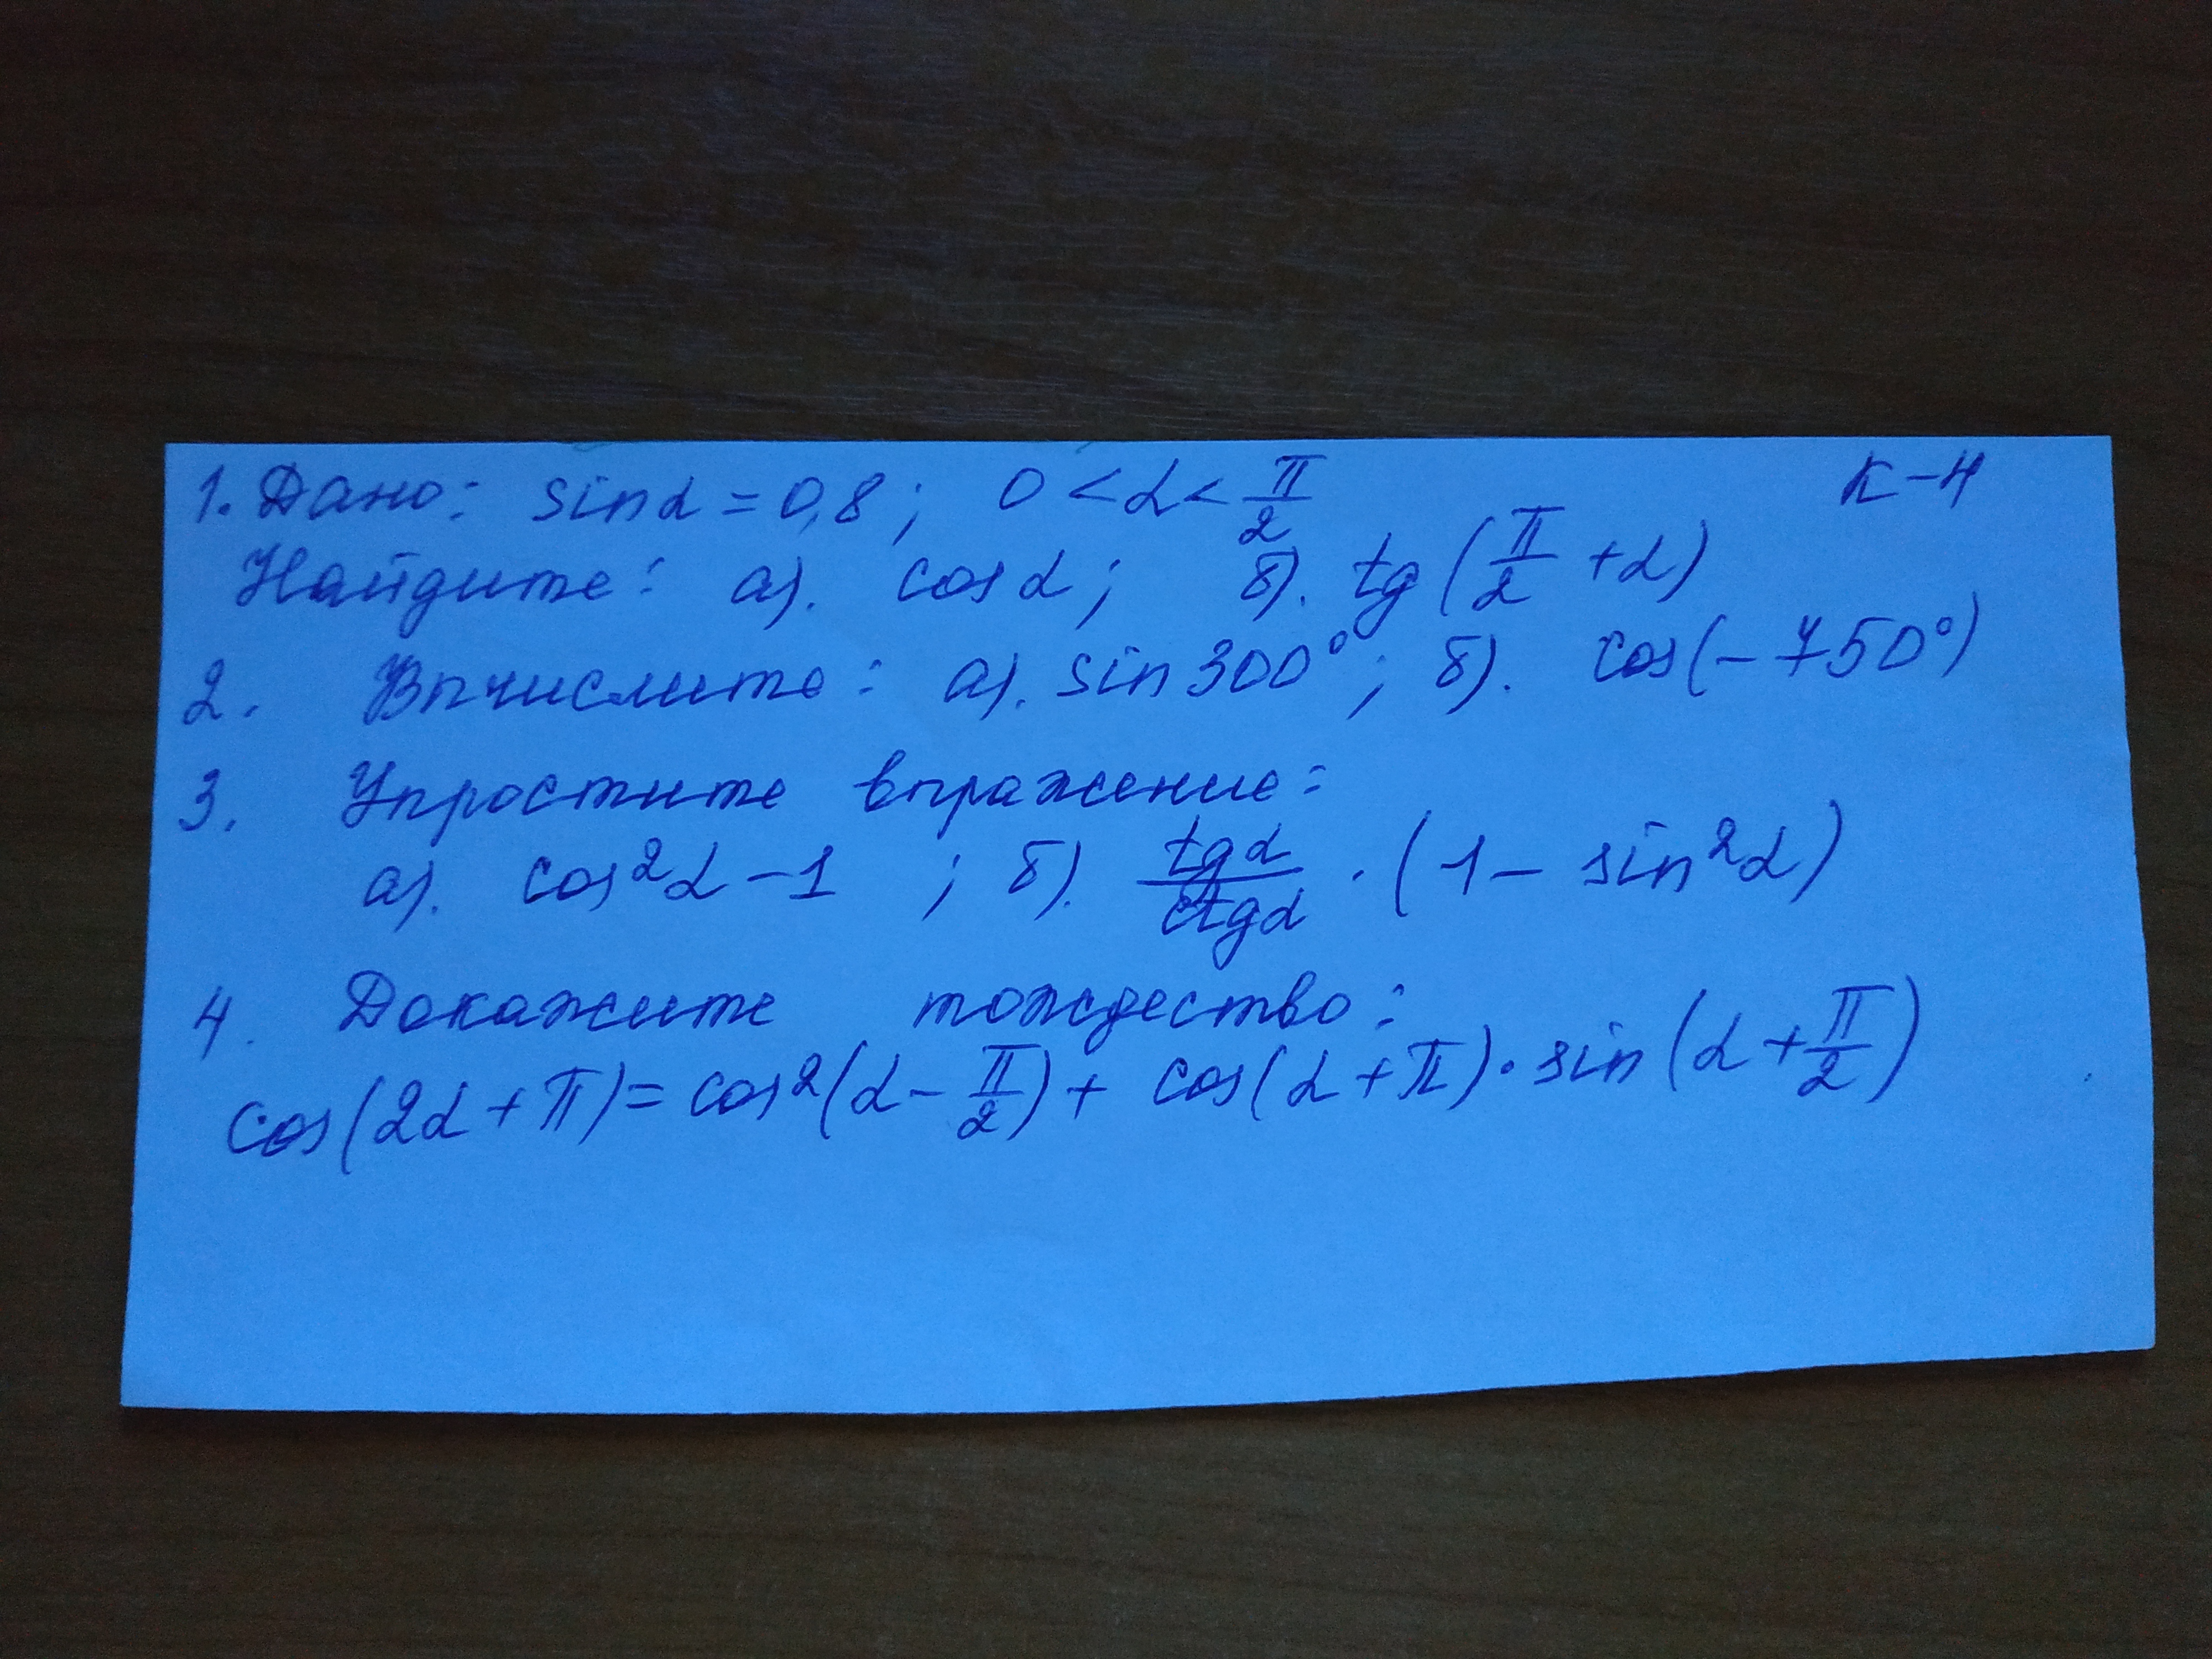 1. Дано: sinα = 0,8; 0 < α < π/2 К-4
Найдите: а). cosα; б). tg(π/2 + α)
2. Вычислите: а). sin300°; б). cos(-750°)
3. Упростите выражение:
а). cos²α - 1 ; б). tgα/ctgα · (1 - sin²α)
4. Докажите тождество:
cos(2α + π) = cos²(α - π/2) + cos(α + π) · sin(α + π/2)